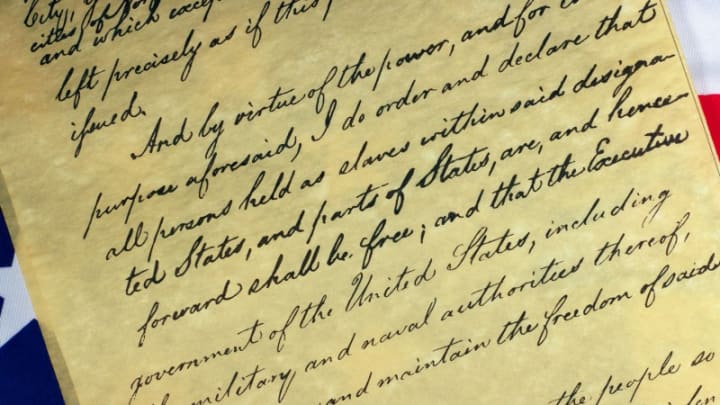 City,
and which excep
left precisely as if this
issued.
And by virtue of the power, and for
purpose aforesaid, I do order and declare that
all persons held as slaves within said designa-
ted States, and parts of States, are, and hence-
forward shall be free; and that the Executive
government of the United States, including
military and naval authorities thereof,
and maintain the freedom of said
the people so